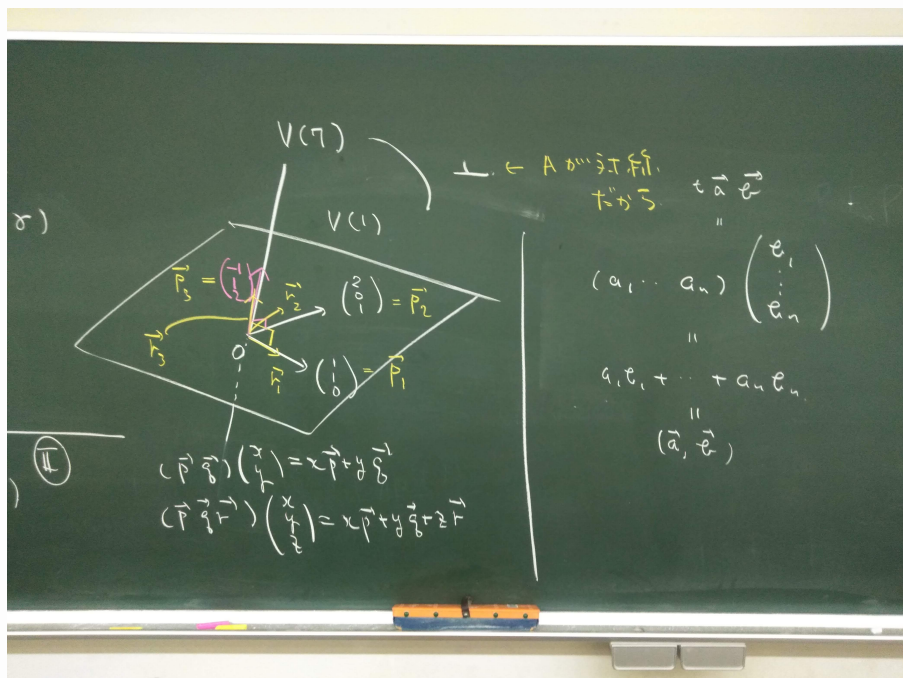 r)
V(7)
⊥ ← Aが対称
だから
V(1)
p⃗₃ = (-1 1 2)
r⃗₂
(2 0 1) = p⃗₂
r⃗₃
O
r⃗₁
(1 1 0) = p⃗₁
Ⅱ
)
(p⃗ q⃗)(x y) = xp⃗ + yq⃗
(p⃗ q⃗ r⃗)(x y z) = xp⃗ + yq⃗ + zr⃗
ᵗa⃗ b⃗
=
(a₁ ⋯ aₙ)(b₁ ⋮ bₙ)
=
a₁b₁ + ⋯ + aₙbₙ
=
(a⃗, b⃗)